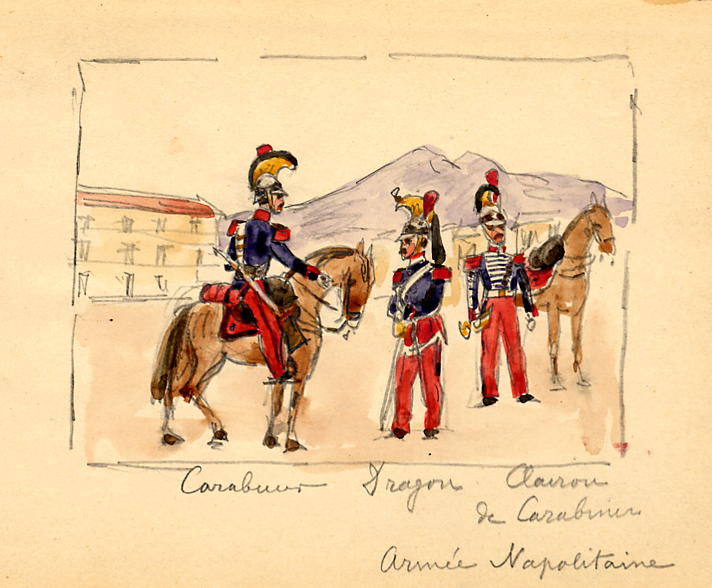 Carabinier Dragon Clairon
de Carabiniers
Armée Napolitaine